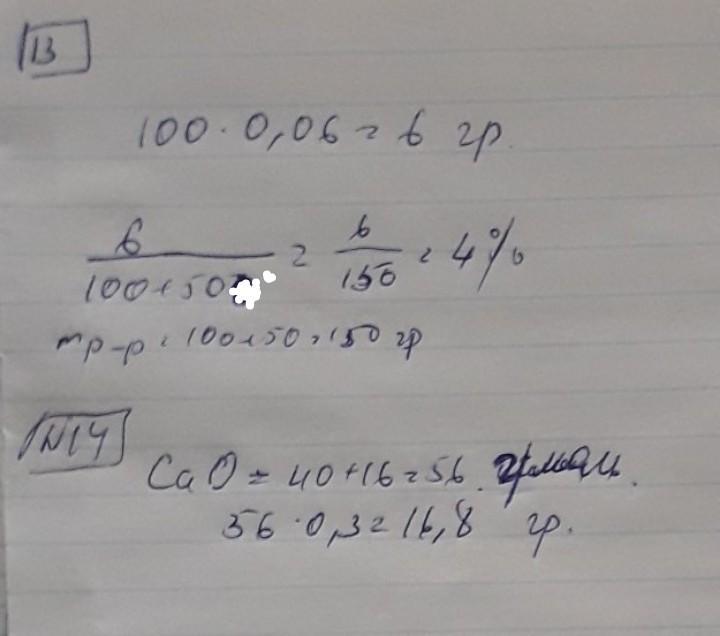 13
100 · 0,06 = 6 гр.
6 / 100+50 = 6 / 150 = 4%
mр-р = 100+50 = 150 гр
N14
CaO = 40+16=56. г/моль.
56 · 0,3 = 16,8 гр.